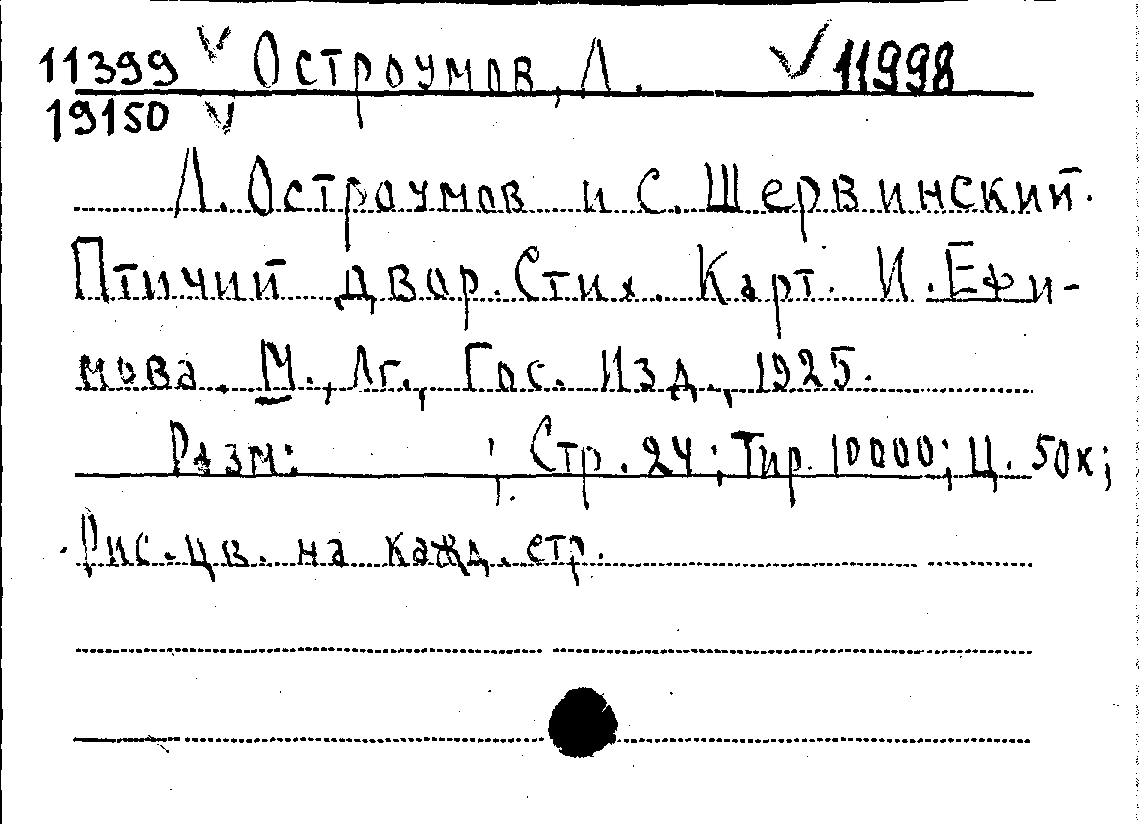 11399 ✓ Остроумов, Л. ✓ 11998
19150 ✓
Л. Остроумов и С. Шервинский.
Птичий двор. Стих. Карт. И. Ефи-
мова. М., Лг., Гос. Изд., 1925.
Разм: ; Стр. 24; Тир. 10000; Ц. 50к;
Рис. цв. на кажд. стр.